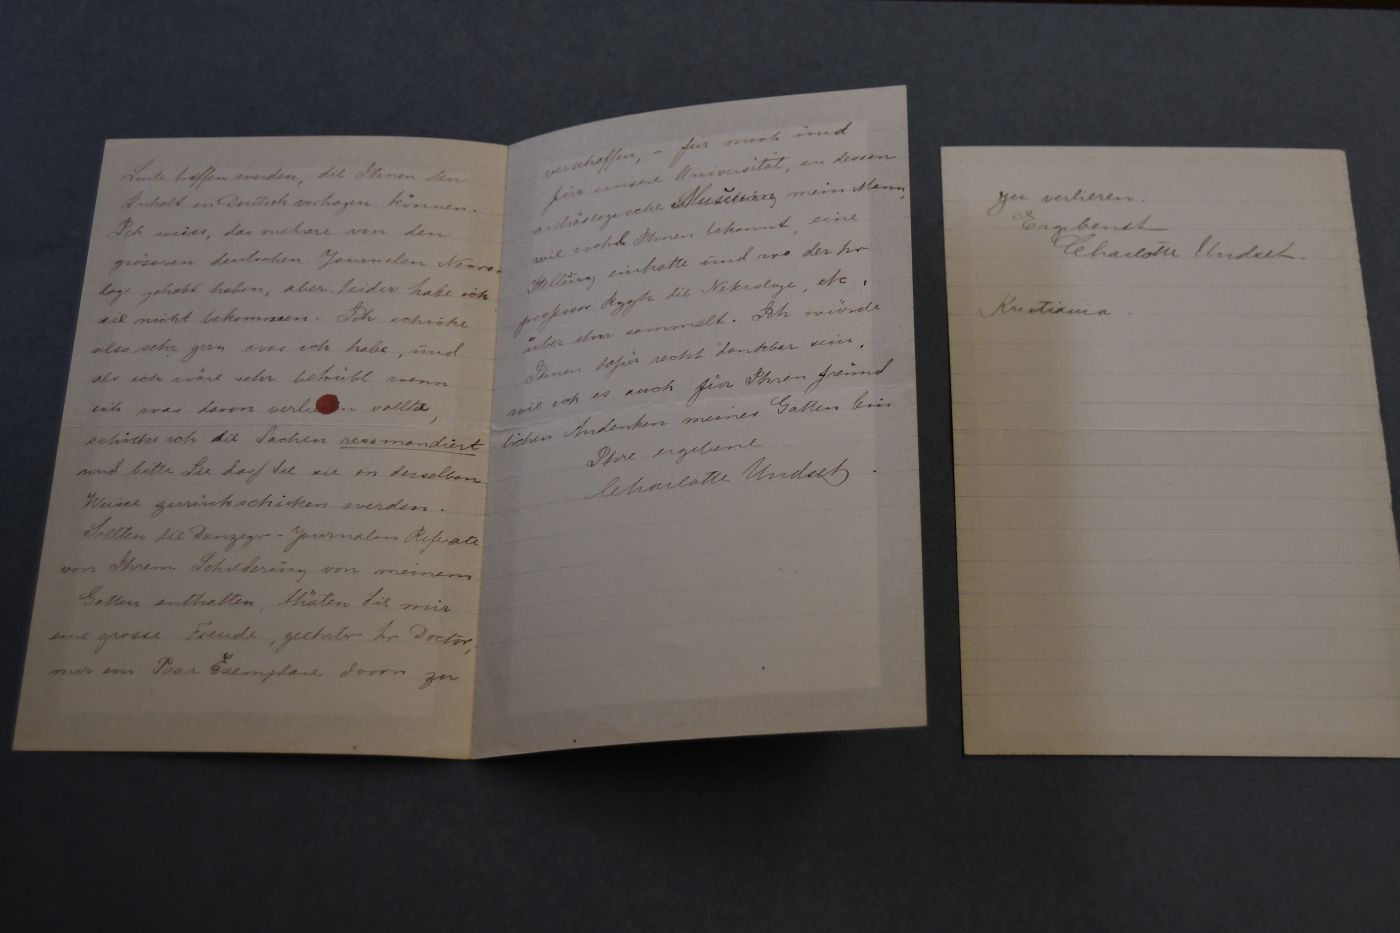 Leute hoffen werden, die Ihnen den
Inhalt in Deutsch vorlegen können.
Ich weiss, das mehrere von den
grösseren deutschen Journalen Necro-
loge gehabt haben, aber leider habe ich
sie nicht bekommen. Ich schicke
also sehr gern was ich habe, und
als ich wäre sehr betrübt wenn
ich was davon verlieren sollte,
schicke ich die Sachen recomandiert
und bitte Sie dass Sie sie in derselben
Weise zurückschicken werden.
Sollten die Danziger-Journalen Referate
von Ihrem Schilderung von meinem
Gatten enthalten, thäten Sie mir
eine grosse Freude, geehrter hr Doctor,
mir ein Paar Exemplare davon zu
verschaffen, – für mich und
für unsere Universität, an dessen
archäologische Museum mein Mann,
wie wohl Ihnen bekannt, eine
Stellung einhatte und wo der hr
professor Rygh die Nekrologe, etc,
über ihn sammelt. Ich würde
Ihnen dafür recht dankbar sein,
wie ich es auch für Ihren freund
lichen Andenken meines Gatten bin
Ihre ergebene
Charlotte Undset.
zu verlieren.
Ergebenst
Charlotte Undset.
Kristiania.